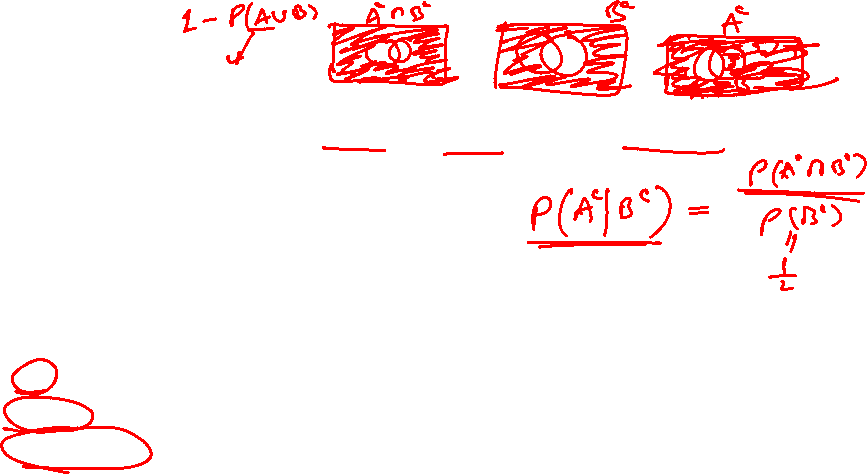 1 - P(A∪B)
Aᶜ ∩ Bᶜ
Bᶜ
Aᶜ
P(Aᶜ|Bᶜ) = P(Aᶜ∩Bᶜ) / P(Bᶜ)
=
1/2